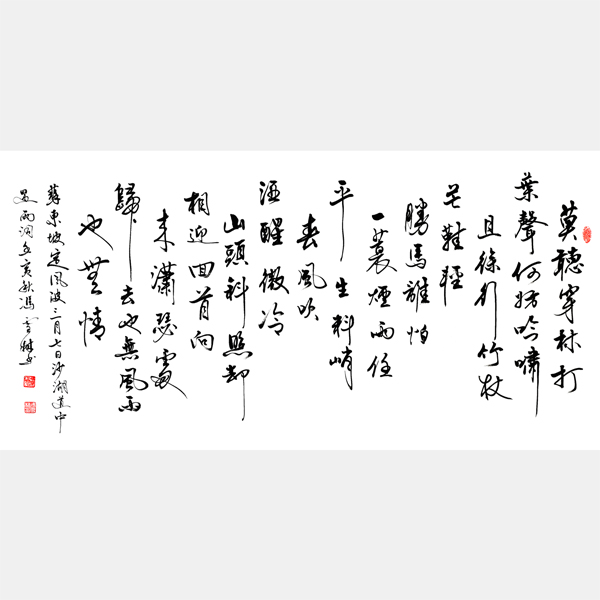 莫聽穿林打
葉聲何妨吟嘯
且徐行竹杖
芒鞋輕
勝馬誰怕
一蓑煙雨任
平生料峭
春風吹
酒醒微冷
山頭斜照却
相迎回首向
来瀟瑟處
歸去也無風雨
也無情
蘇東坡定風波三月七日沙湖道中
遇雨詞 亥秋馮雪